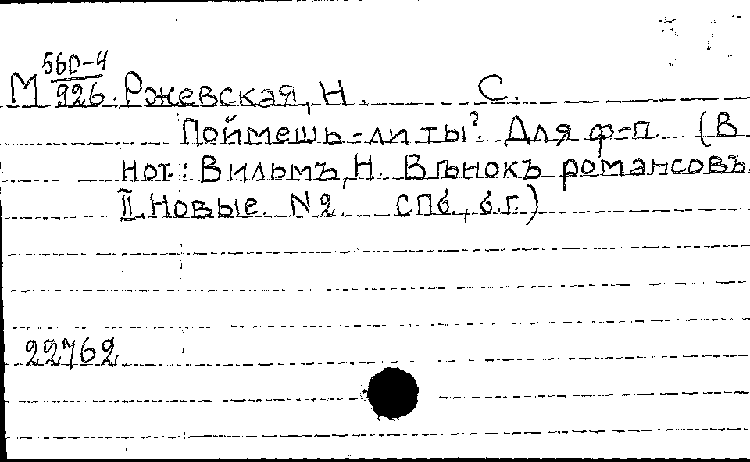 М 560-4/926. Ржевская, Н. С.
Поймешь-ли ты? Для ф-п. (В
нот.: Вильмъ, Н. Вѣнокъ романсовъ.
II. Новые. N 2. СПб., б.г.)
22762